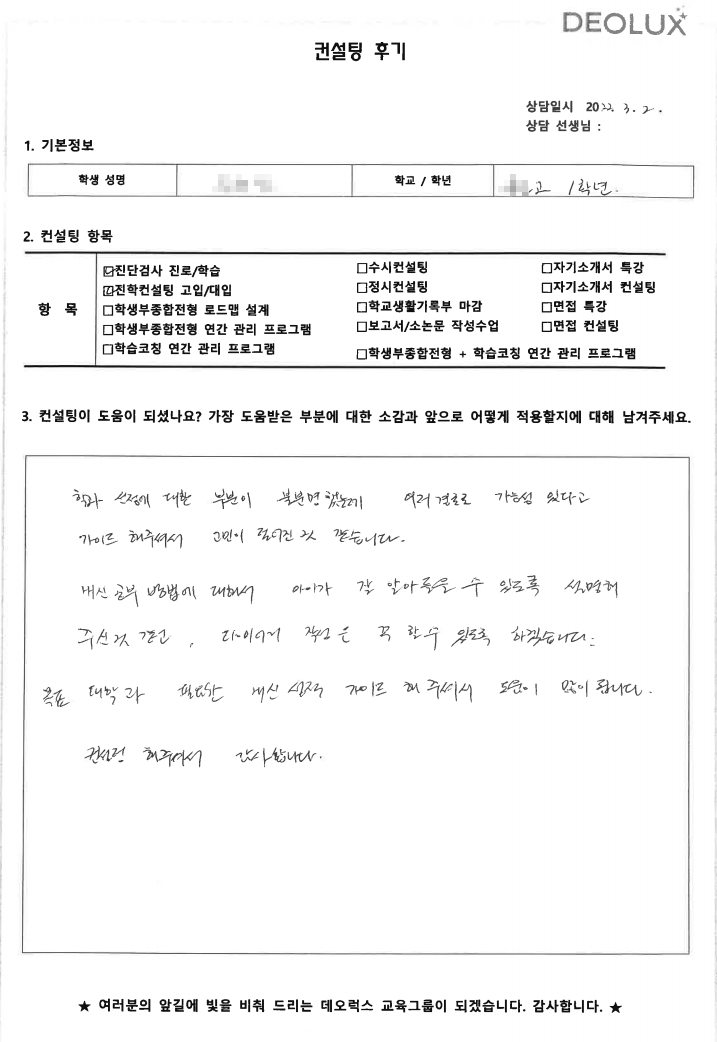 DEOLUX
컨설팅 후기
상담일시 2022. 3. 2.
상담 선생님 :
1. 기본정보
학생 성명 학교 / 학년 고 1학년.
2. 컨설팅 항목
항 목
☑진단검사 진로/학습 □수시컨설팅 □자기소개서 특강
☑진학컨설팅 고입/대입 □정시컨설팅 □자기소개서 컨설팅
□학생부종합전형 로드맵 설계 □학교생활기록부 마감 □면접 특강
□학생부종합전형 연간 관리 프로그램 □보고서/소논문 작성수업 □면접 컨설팅
□학습코칭 연간 관리 프로그램 □학생부종합전형 + 학습코칭 연간 관리 프로그램
3. 컨설팅이 도움이 되셨나요? 가장 도움받은 부분에 대한 소감과 앞으로 어떻게 적용할지에 대해 남겨주세요.
학과 선정에 대한 부분이 불분명했는데 여러 경로로 가능성 있다고
가이드 해주셔서 고민이 덜어진 것 같습니다.
내신 공부 방법에 대해서 아이가 잘 알아들을 수 있도록 설명해
주신것 같고, 다이어리 작성은 꼭 할 수 있도록 하겠습니다.
목표 대학과 필요한 내신 성적 가이드 해 주셔서 도움이 많이 됩니다.
컨설팅 해주셔서 감사합니다.
★ 여러분의 앞길에 빛을 비춰 드리는 데오럭스 교육그룹이 되겠습니다. 감사합니다. ★